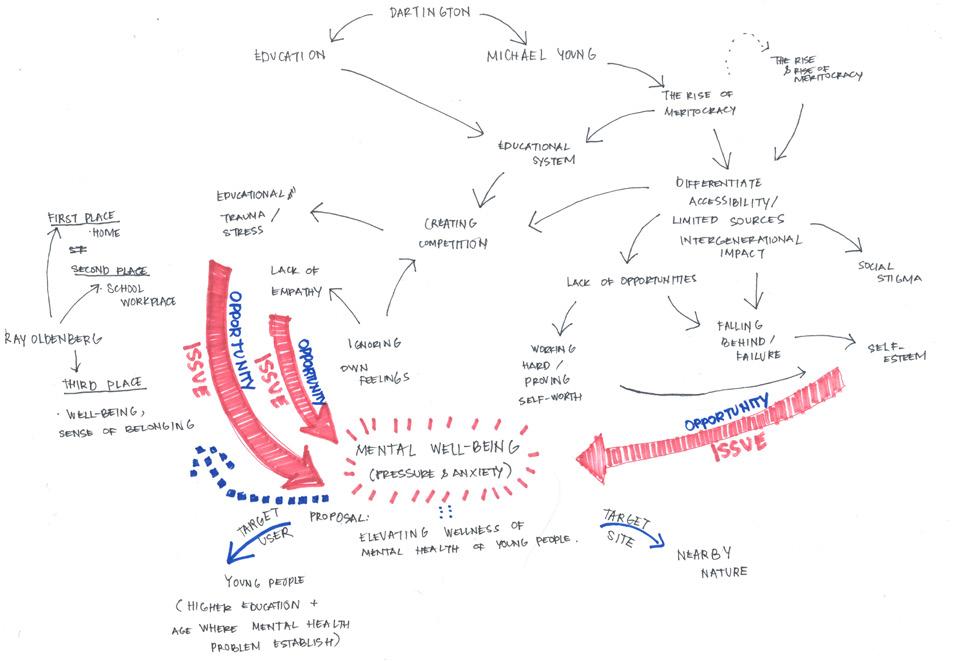 DARTINGTON
EDUCATION
MICHAEL YOUNG
THE RISE
& RISE OF
MERITOCRACY
THE RISE OF
MERITOCRACY
EDUCATIONAL
SYSTEM
DIFFERENTIATE
ACCESSIBILITY/
LIMITED SOURCES
INTERGENERATIONAL
IMPACT
EDUCATIONAL
TRAUMA/
STRESS
CREATING
COMPETITION
FIRST PLACE
· HOME
SECOND PLACE
· SCHOOL
WORKPLACE
LACK OF
EMPATHY
LACK OF OPPORTUNITIES
SOCIAL
STIGMA
RAY OLDENBERG
OPPORTUNITY
ISSUE
OPPORTUNITY
ISSUE
IGNORING
OWN
FEELINGS
FALLING
BEHIND/
FAILURE
WORKING
HARD/
PROVING
SELF-WORTH
SELF-
ESTEEM
THIRD PLACE
· WELL-BEING,
SENSE OF BELONGING
OPPORTUNITY
ISSUE
MENTAL WELL-BEING
(PRESSURE & ANXIETY)
TARGET
USER
PROPOSAL:
ELEVATING WELLNESS OF
MENTAL HEALTH OF YOUNG PEOPLE.
TARGET
SITE
NEARBY
NATURE
YOUNG PEOPLE
(HIGHER EDUCATION +
AGE WHERE MENTAL HEALTH
PROBLEM ESTABLISH)